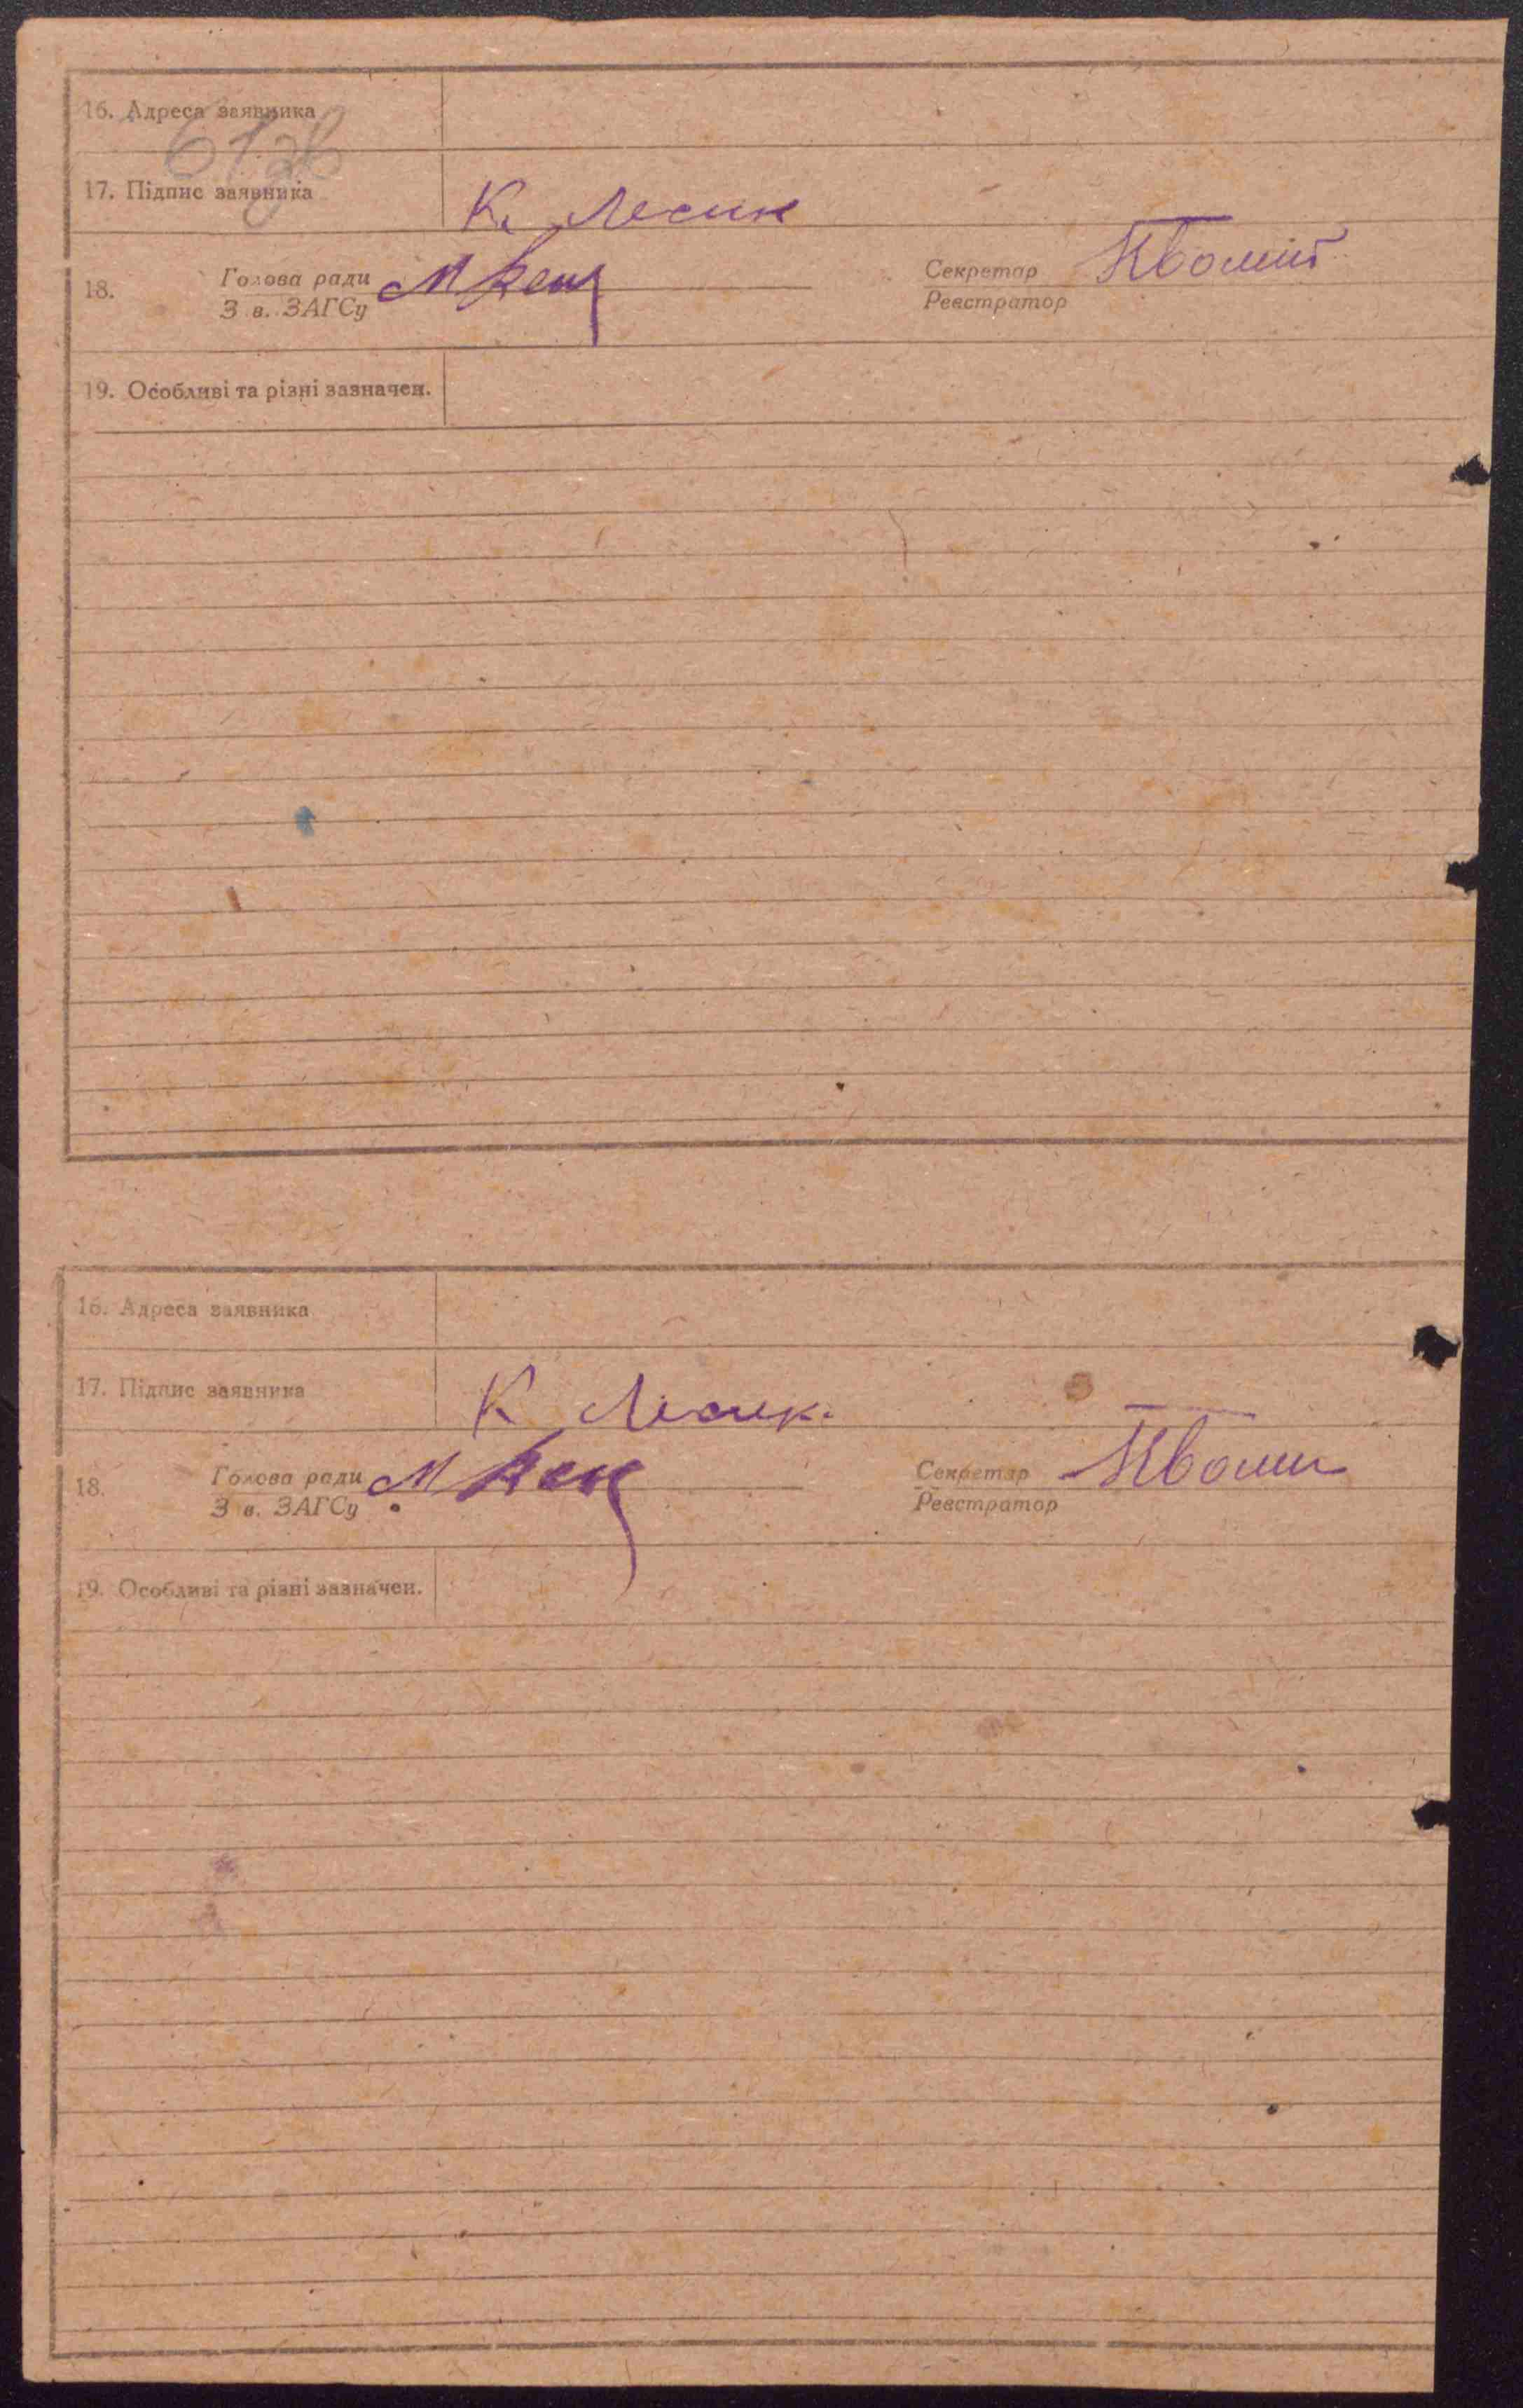 16. Адреса заявника
17. Підпис заявника К. Лесик
18. Голова ради Секретар
З в. ЗАГСу Реєстратор
19. Особливі та різні зазначен.
16. Адреса заявника
17. Підпис заявника К Лесик.
18. Голова ради Секретар
З в. ЗАГСу Реєстратор
19. Особливі та різні зазначен.